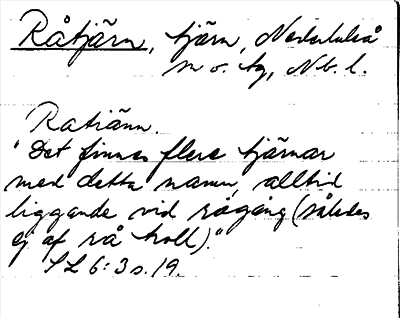 Råtjärn, tjärn, Nederluleå
sn o. tg, Nb. l.
Ratiänn.
"Det finnes flere tjärnar
med detta namn, alltid
liggande vid rågång (således
ej af rå troll)."
SL 6:3 s. 19.